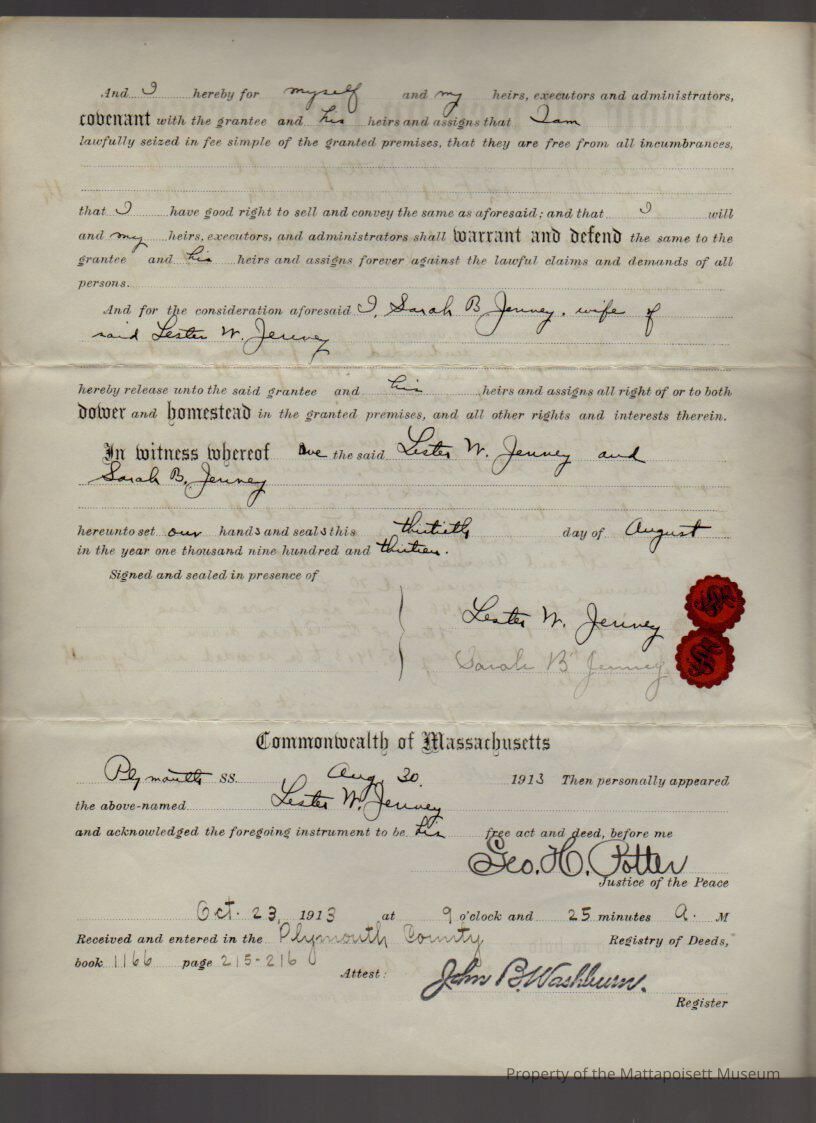 And I hereby for myself and my heirs, executors and administrators,
covenant with the grantee and his heirs and assigns that I am
lawfully seized in fee simple of the granted premises, that they are free from all incumbrances,
that I have good right to sell and convey the same as aforesaid; and that I will
and my heirs, executors, and administrators shall warrant and defend the same to the
grantee and his heirs and assigns forever against the lawful claims and demands of all
persons.
And for the consideration aforesaid I, Sarah B Jenney, wife of
said Lester W. Jenney
hereby release unto the said grantee and his heirs and assigns all right of or to both
dower and homestead in the granted premises, and all other rights and interests therein.
In witness whereof we the said Lester W. Jenney and
Sarah B. Jenney
hereunto set our hands and seals this thirtieth day of August
in the year one thousand nine hundred and thirteen.
Signed and sealed in presence of
Lester W. Jenney
Sarah B Jenney
Commonwealth of Massachusetts
Plymouth ss. Aug. 30. 1913 Then personally appeared
the above-named Lester W. Jenney
and acknowledged the foregoing instrument to be his free act and deed, before me
Geo. H. Potter
Justice of the Peace
Oct. 23, 1913 at 9 o'clock and 25 minutes A. M
Received and entered in the Plymouth County Registry of Deeds,
book 1166 page 215-216
Attest: John B. Washburn.
Register
Property of the Mattapoisett Museum